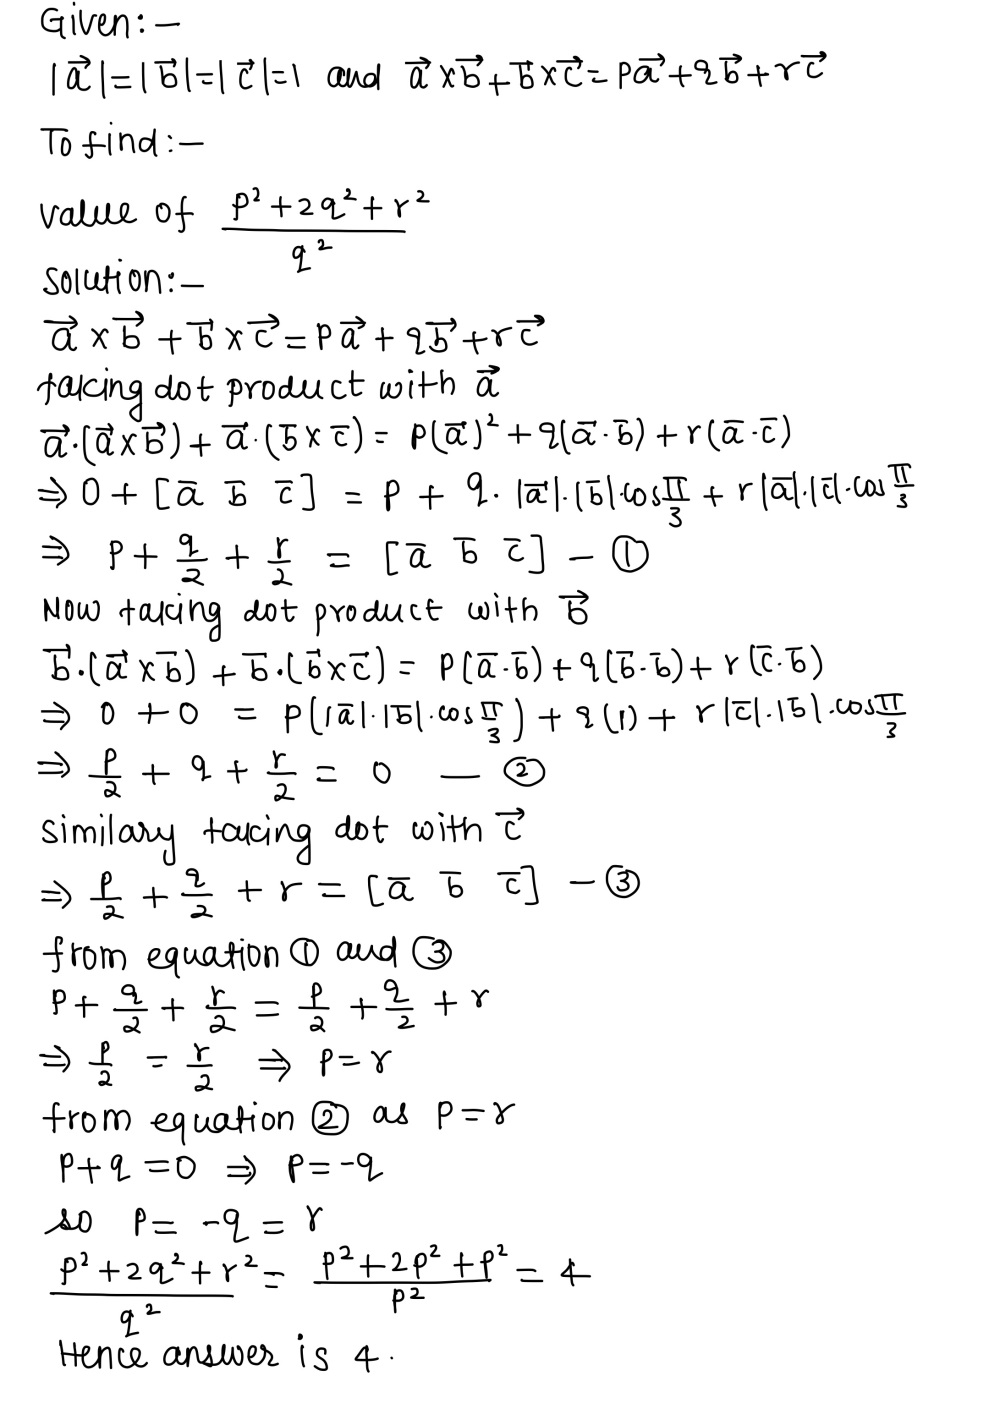 Given:-
|a⃗|=|b⃗|=|c⃗|=1 and a⃗×b⃗+b⃗×c⃗=pa⃗+qb⃗+rc⃗
To find:-
value of (p²+2q²+r²)/q²
Solution:-
a⃗×b⃗+b⃗×c⃗=pa⃗+qb⃗+rc⃗
taking dot product with a⃗
a⃗·(a⃗×b⃗)+a⃗·(b̄×c̄)=p(a⃗)²+q(ā·b̄)+r(ā·c̄)
⇒ 0+[ā b̄ c̄] = p + q.|a⃗|.|b̄|.cos π/3 + r|ā|.|c̄|.cos π/3
⇒ p + q/2 + r/2 = [ā b̄ c̄] - ①
Now taking dot product with b⃗
b⃗.(a⃗×b̄)+b̄.(b⃗×c̄)= p(ā.b̄)+q(b̄.b̄)+r(c̄.b̄)
⇒ 0+0 = p(|ā|.|b̄|.cos π/3)+q(1)+r|c̄|.|b̄|.cos π/3
⇒ p/2 + q + r/2 = 0 — ②
similary taking dot with c⃗
⇒ p/2 + q/2 + r = [ā b̄ c̄] - ③
from equation ① and ③
p + q/2 + r/2 = p/2 + q/2 + r
⇒ p/2 = r/2 ⇒ p=r
from equation ② as p=r
p+q=0 ⇒ p=-q
so p= -q = r
(p²+2q²+r²)/q² = (p²+2p²+p²)/p² = 4
Hence answer is 4.